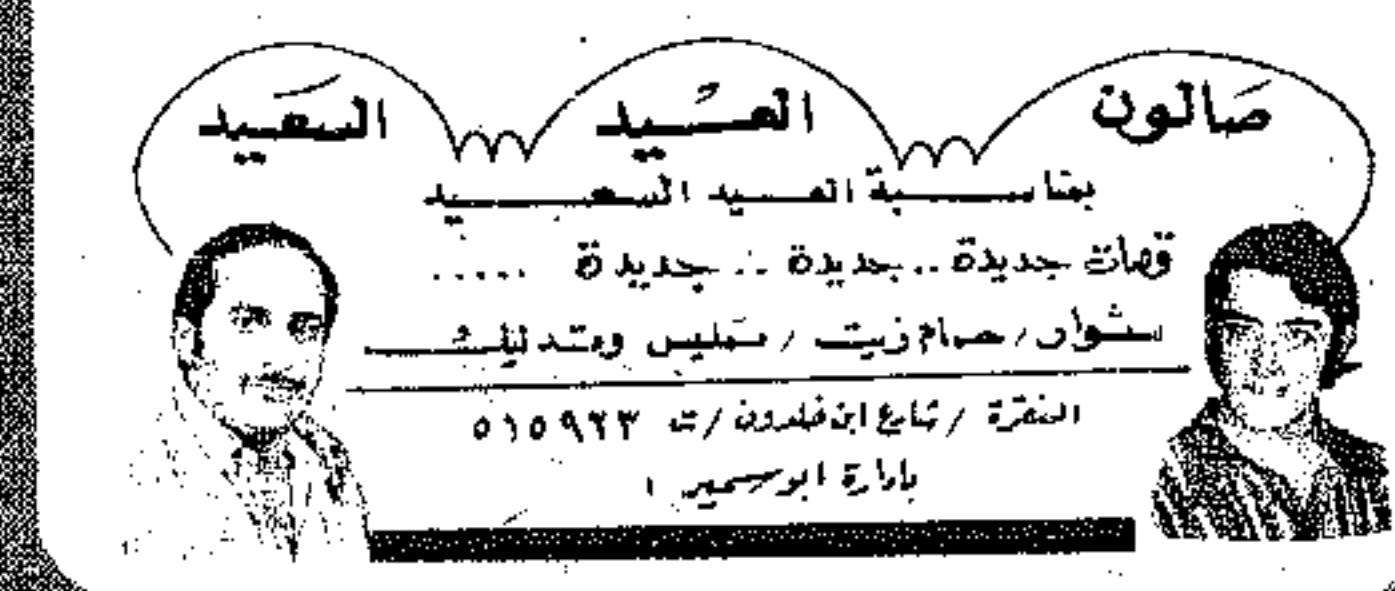 صالون العيد السعيد
بمناسبة العيد السعيد
قصات جديدة .. جديدة .. جديدة .....
سشوار / حمام زيت / تمليس وتدليك
النقرة / شارع ابن خلدون / ت ٥١٥٩٢٣
بادارة ابو سمير